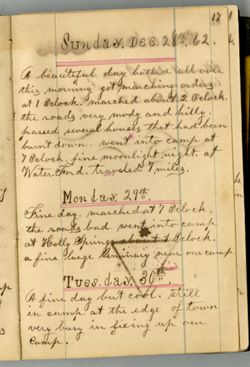 17
Sunday. Dec. 28th, 62.
A beautiful day bathed all over
this morning got marching orders
at 1 Oclock. marched about 2 Oclock.
the roads very mody and hilly.
passed several houses that had been
burnt down. went into camp at
7 Oclock. fine moonlight night. at
Water Ford. traveled 7 miles.
Monday. 29th.
Fine day. marched at 7 Oclock.
the roads bad went into camp
at Holly Springs about 1 Oclock.
a fine large Seminary near our camp
Tuesday. 30th.
A fine day but cool. still
in camp at the edge of town
very busy in fixing up our
Camp.